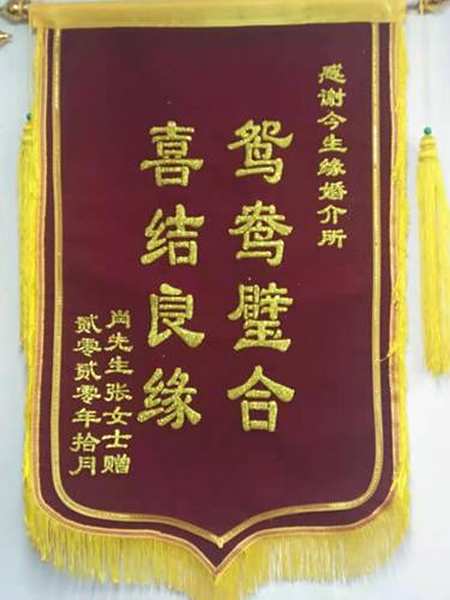 感谢今生缘婚介所
鸳鸯璧合
喜结良缘
肖先生张女士赠
贰零贰零年拾月